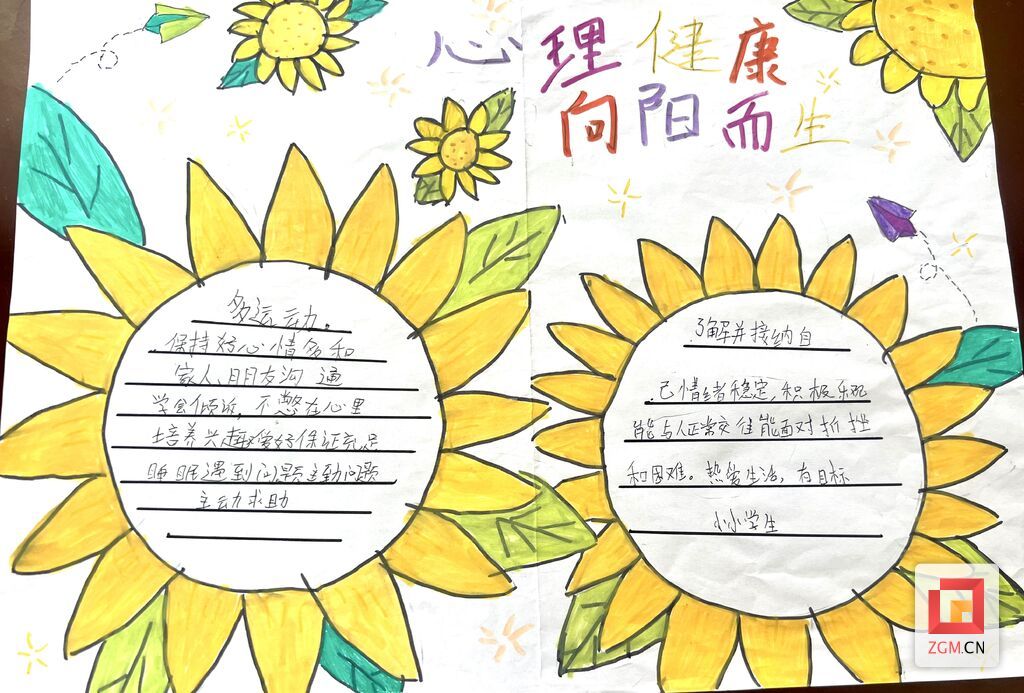 心理健康
向阳而生
多运动.
保持好心情多和
家人、朋友沟通
学会倾诉,不憋在心里
培养兴趣爱好保证充足
睡眠遇到问题主动问题
主动求助
了解并接纳自
己情绪稳定,积极乐观
能与人正常交往能面对挫
和困难。热爱生活,有目标
小小学生
ZGM.CN